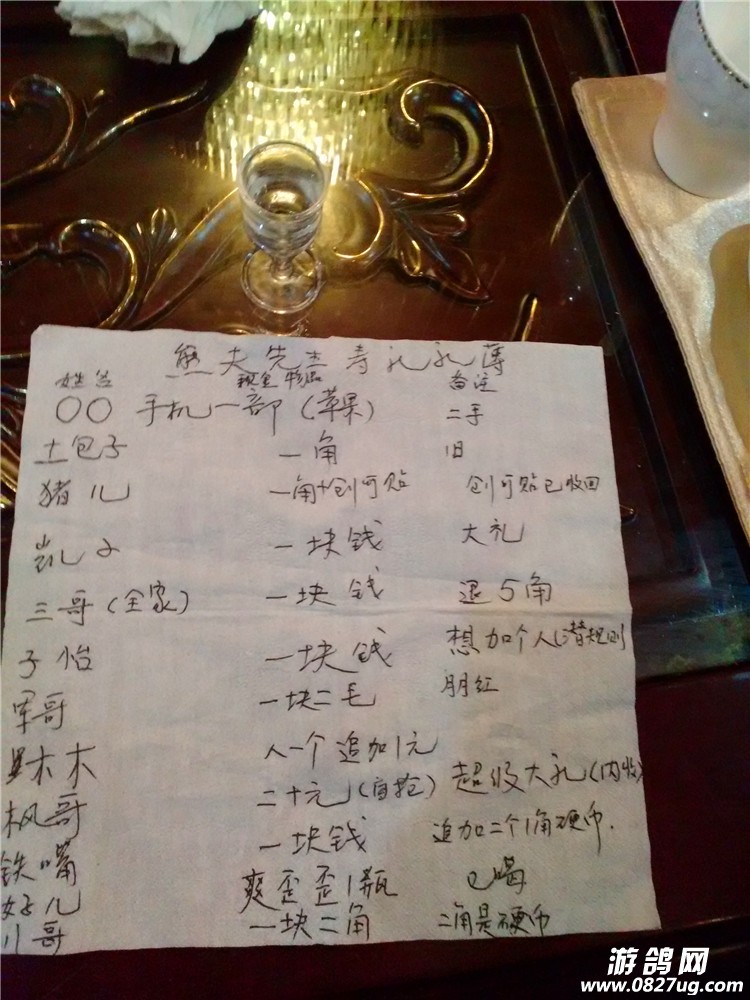 熊夫先生寿礼礼薄
姓名 现金 物品 备注
〇〇 手机一部（苹果） 二手
土包子 一角 旧
猪儿 一角+创可贴 创可贴已收回
凯子 一块钱 大礼
三哥（全家） 一块钱 退5角
子怡 一块钱 想加个人（潜规则
军哥 一块二毛 朋红
木木 人一个 追加1元
枫哥 二十元（自抢） 超级大礼（内收）
铁嘴 一块钱 追加二个1角硬币.
好儿 爽歪歪1瓶 已喝
川哥 一块二角 二角是硬币
游鸽网
www.0827ug.com